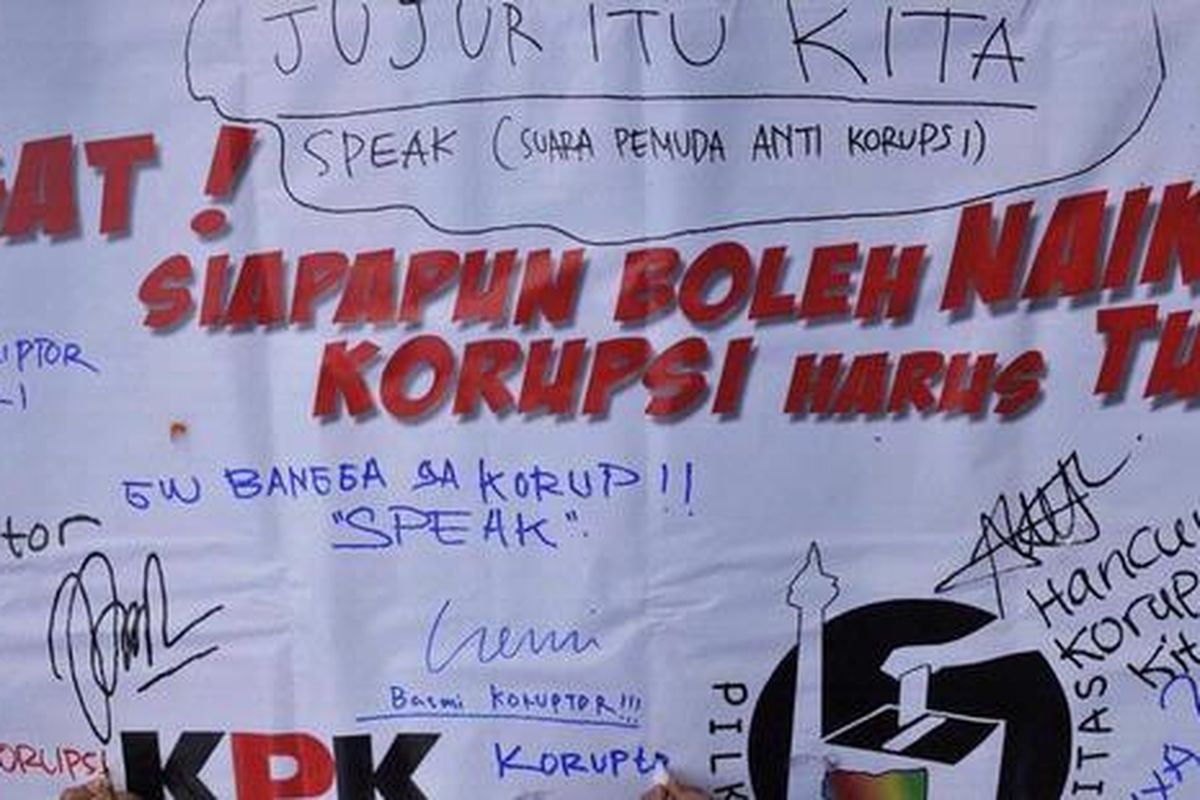 JUJUR ITU KITA
SPEAK (SUARA PEMUDA ANTI KORUPSI)
GAT !
SIAPAPUN BOLEH NAIK
KORUPSI HARUS TU
IPTOR
GW BANGGA GA KORUP !!
"SPEAK"
tor
Hancu
Korup
Kit
Basmi KORUPTOR!!!
ORUPSI
KPK
Korupt
PILK
ITAS